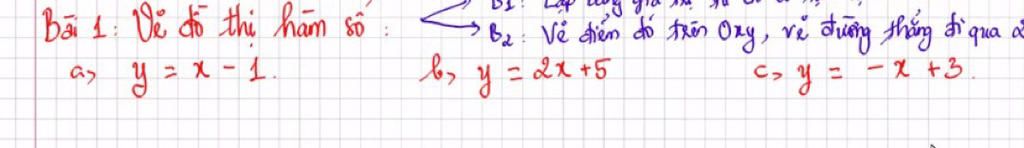 Bài 1: Vẽ đồ thị hàm số :
B2: Vẽ điểm đó trên Oxy, vẽ đường thẳng đi qua
a, y = x - 1.
b, y = 2x + 5
c, y = -x + 3.